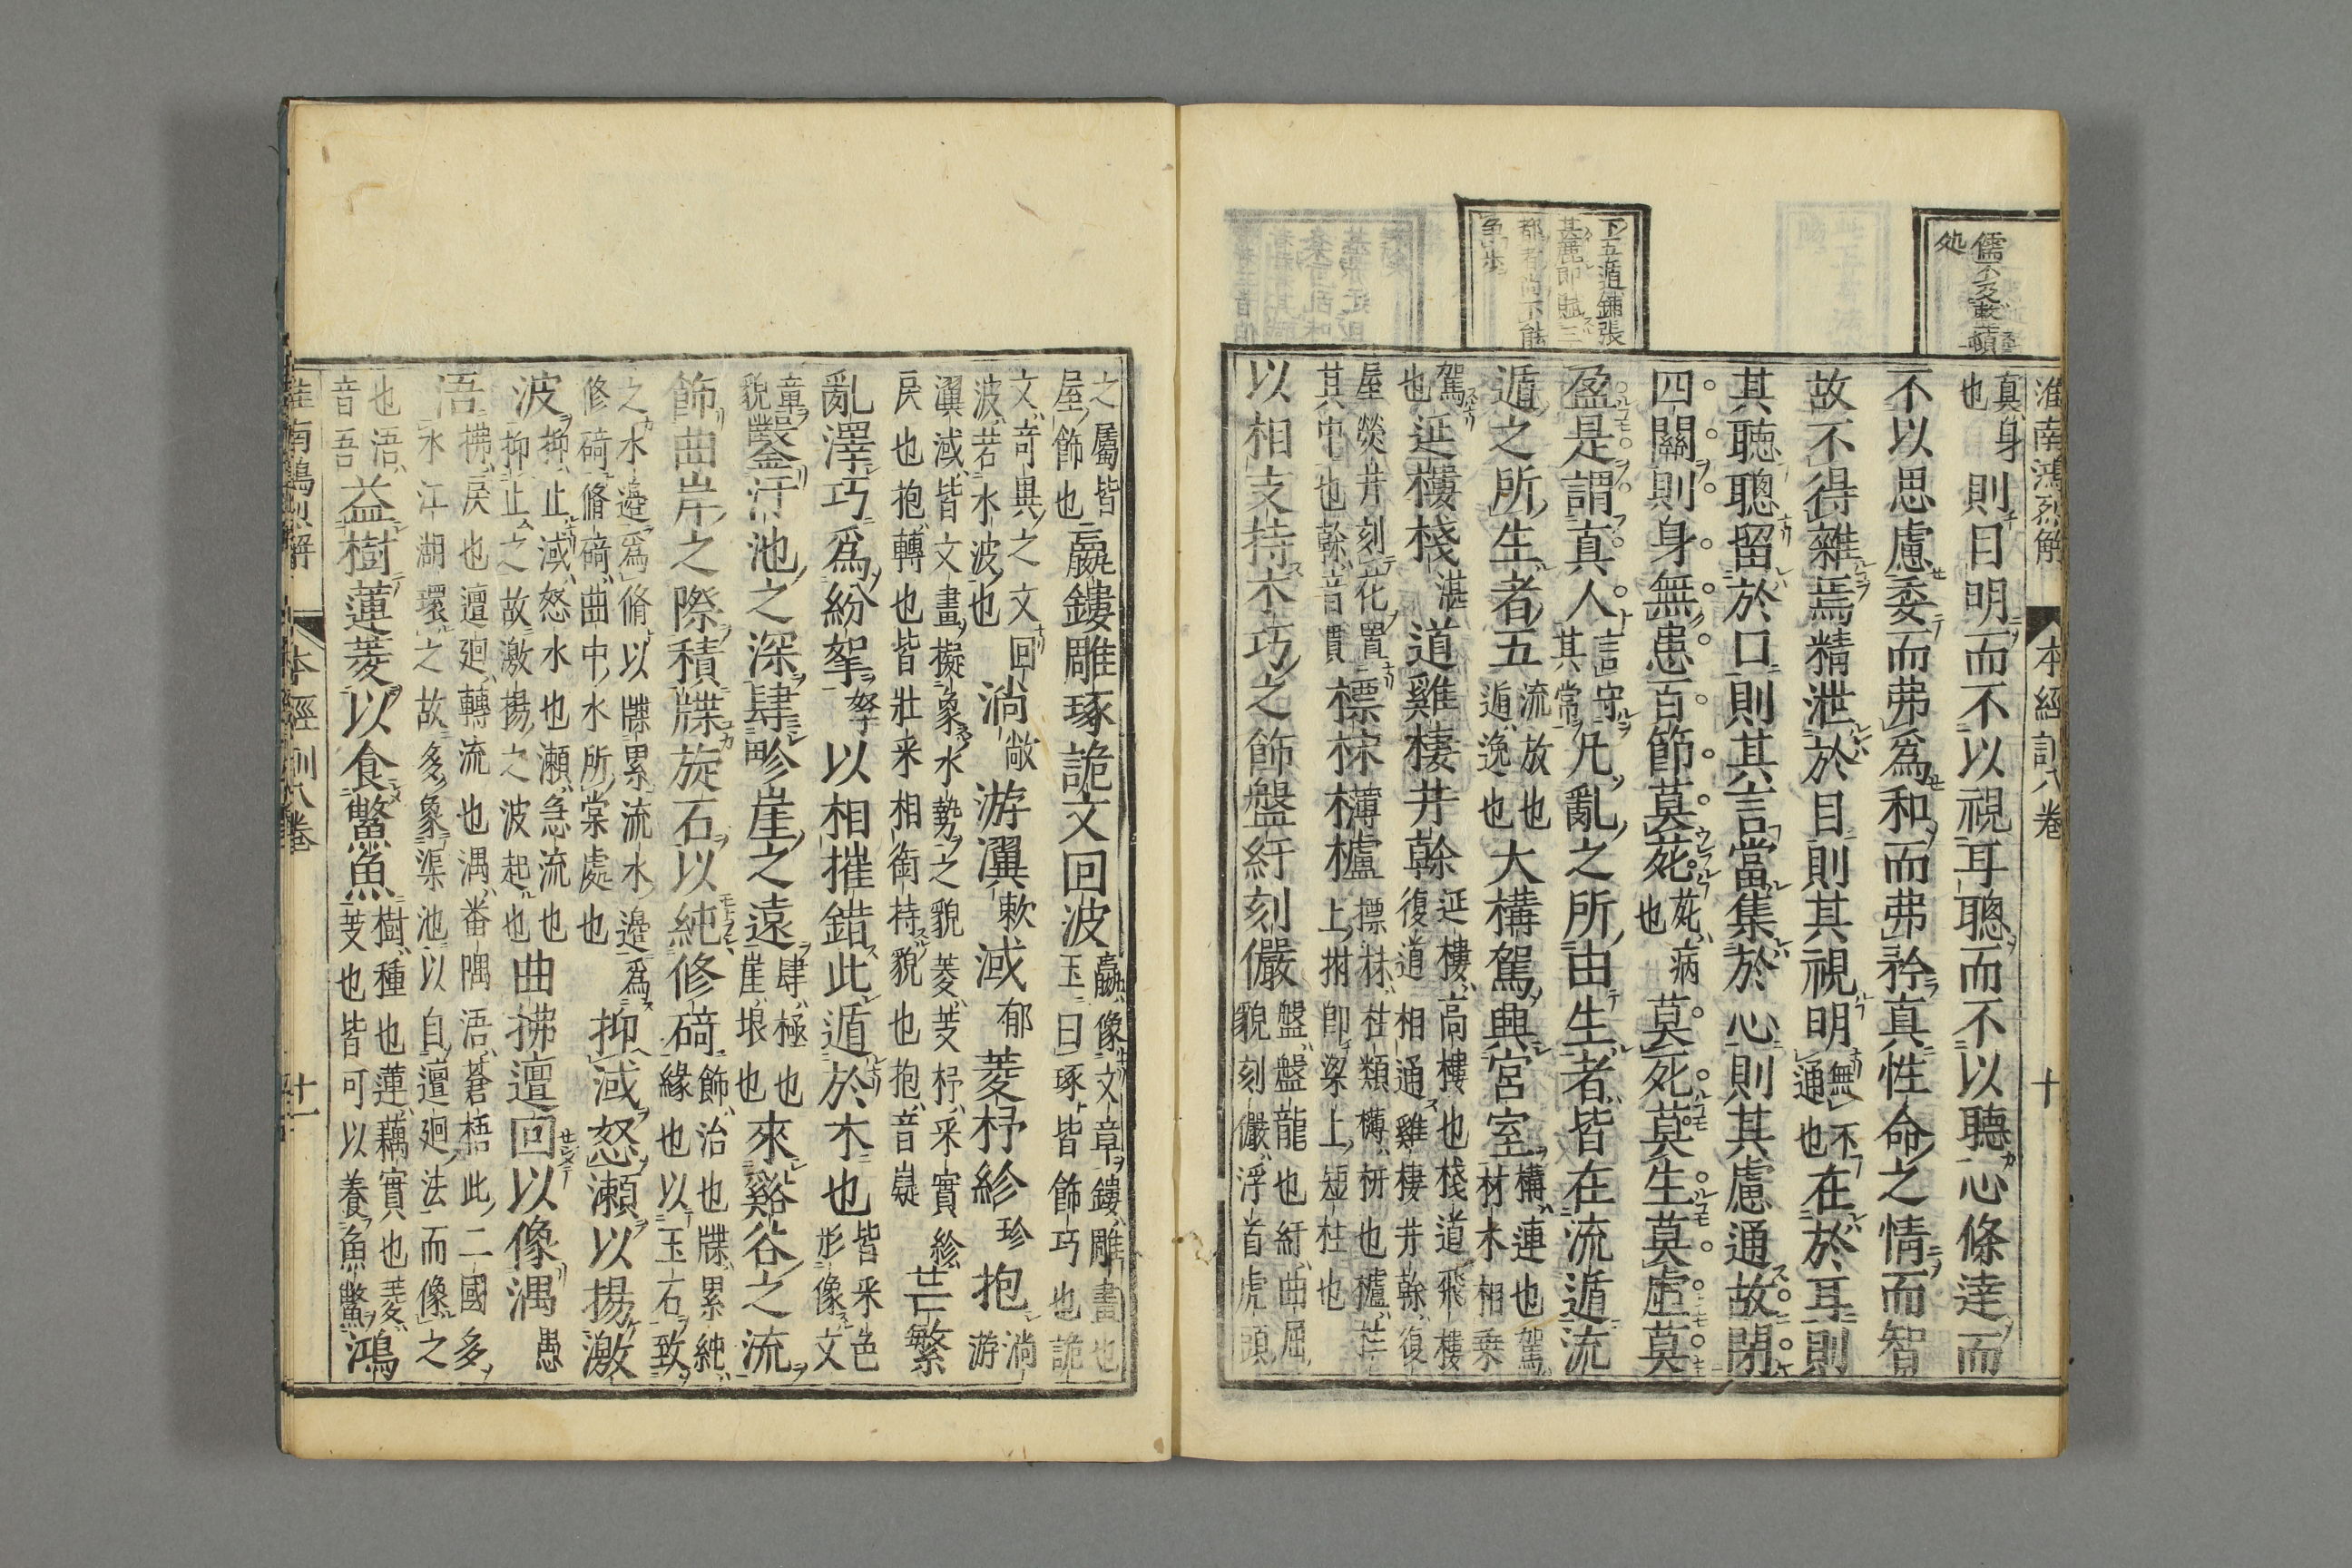 淮南鴻烈解 本經訓八卷 十
儒不及
処
下五遁鋪張
其麗即賦三
都者尚不能
争步
真身也則目明而不以視耳聰而不以聽心條達而
不以思慮委而弗爲和而弗矜真性命之情而智
故不得雜焉精泄於目則其視明無不通也在於耳則
其聽聰留於口則其言當集於心則其慮通故閉
四關則身無患百節莫苑苑病也莫死莫生莫虛莫
盈是謂真人言守其常凡亂之所由生者皆在流遁流
遁之所生者五流放也遁逸也大構駕興宮室構連也駕材木相乘
駕也延樓棧湛道雞棲井榦延樓高樓也棧道飛樓復道相通雞棲井榦復
屋熒井刻花置其中也榦音貫標枺欂櫨標枺柱類欂枅也櫨柱上拊即梁上短柱也
以相支持木巧之飾盤紆刻儼盤盤龍也紆曲屈貌刻儼浮首虎頭
之屬皆屋飾也嬴鏤雕琢詭文回波嬴像文章鏤雕畫也玉曰琢皆飾巧也詭
文奇異之文回波若水波也淌敞游瀷敕淢郁菱杼紾珍抱淌游
瀷淢皆文畫擬象水勢之貌菱芰杼采實紾戾也抱轉也皆壯采相銜持貌也抱音嶷芒繁
亂澤巧爲紛挐拏以相摧錯此遁於木也皆采色形像文
章貌鑿汙池之深肆畛崖之遠肆極也崖垠也來谿谷之流
飾曲岸之際積牒旋石以純修碕飾治也牒累純緣也以玉石致
之水邊爲脩以牒累流水邊爲修碕脩碕曲中水所棠處也抑淢怒瀨以揚激
波抑止淢怒水也瀨急流也抑止之故激揚之波起也曲拂邅回以像湡愚
浯拂戾也邅廻轉流也湡番隅浯蒼梧此二國多水江湖環之故多象渠池以自邅廻法而像之
也浯音吾益樹蓮菱以食鱉魚樹種也蓮藕實也菱芰也皆可以養魚鱉鴻
淮南鴻烈解 本經訓八卷 十一